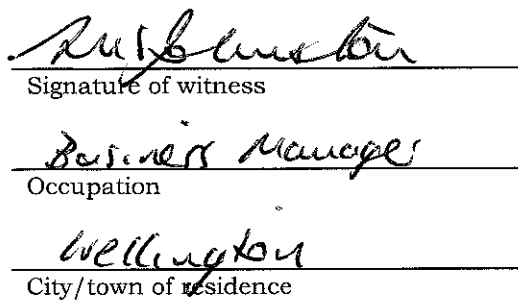 Signature of witness
Business Manager
Occupation
Wellington
City/town of residence